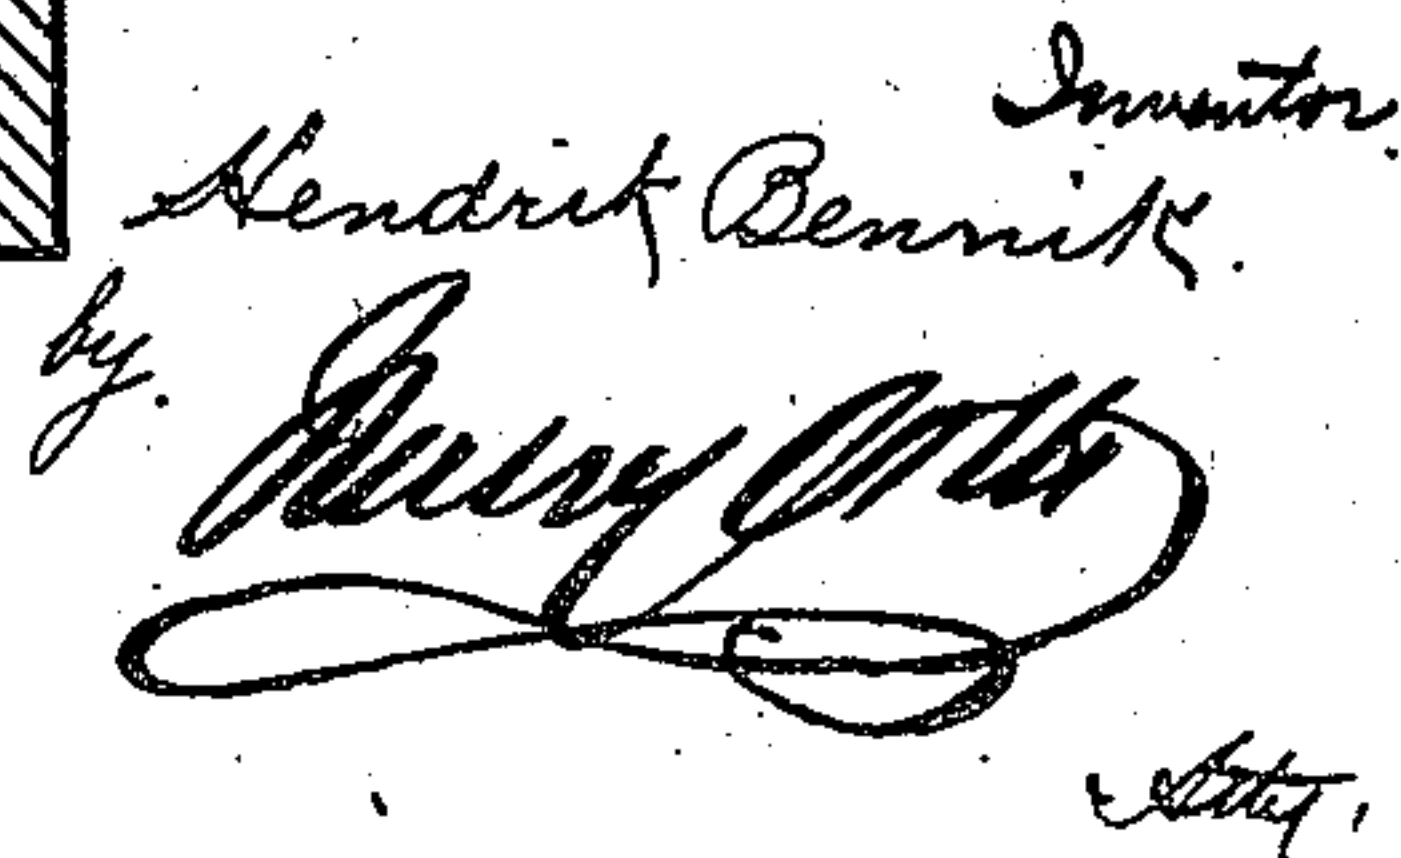 Inventor.
Hendrik Bennik.
by.
Henry Orth
Atty.